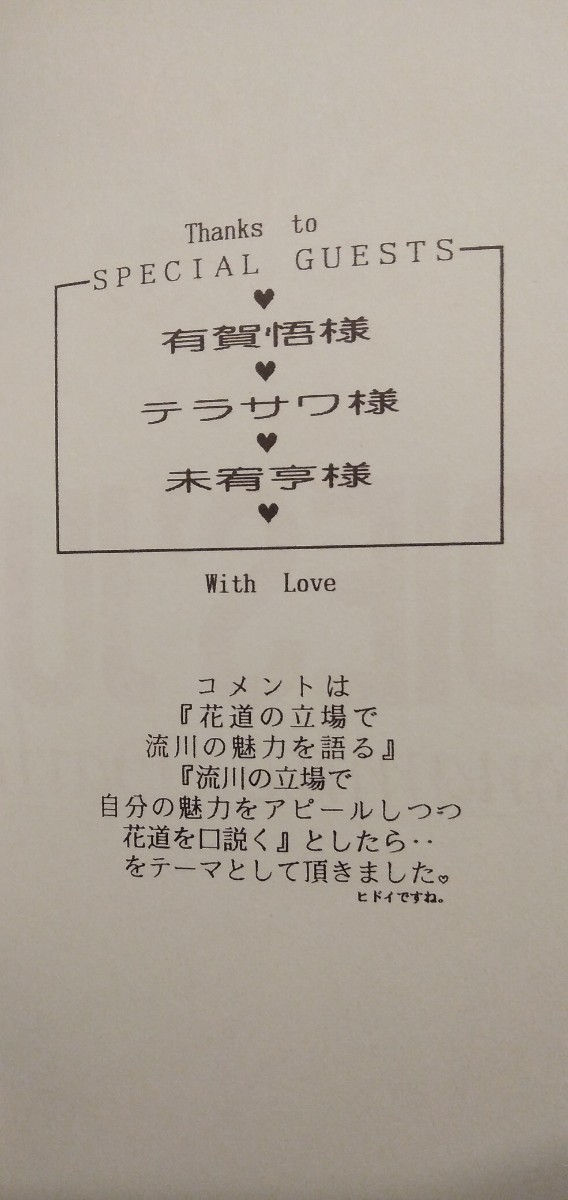 Thanks to
SPECIAL GUESTS
♥
有賀悟様
♥
テラサワ様
♥
未宥亨様
♥
With Love
コメントは
『花道の立場で
流川の魅力を語る』
『流川の立場で
自分の魅力をアピールしつつ
花道を口説く』としたら‥
をテーマとして頂きました。
ヒドイですね。